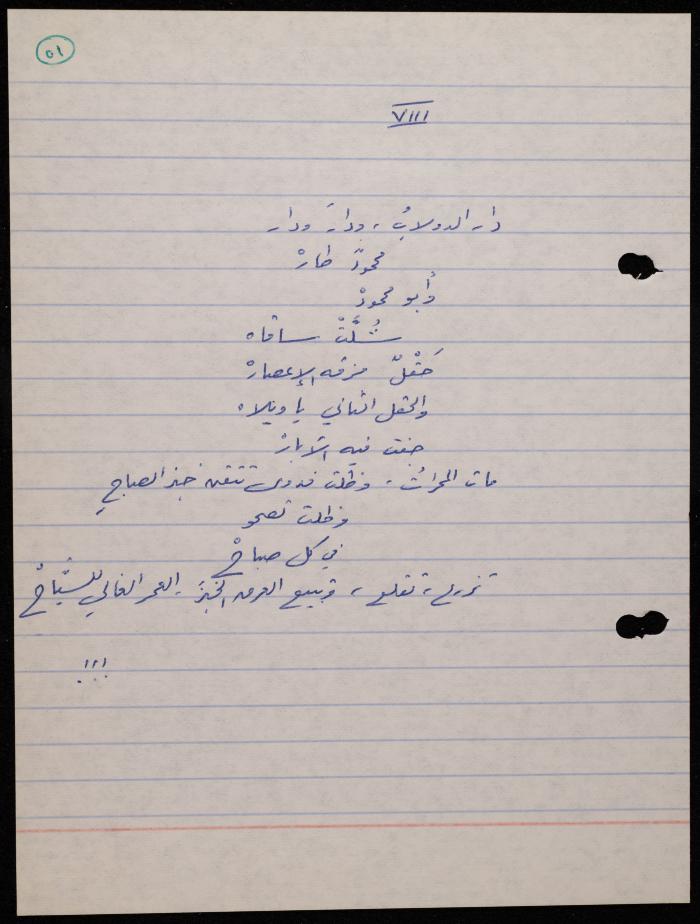 ٥١
VIII
دار الدولابُ، ودارَ ودار
محمودٌ طارْ
وأبو محمودْ
شُلَّتْ ساقاه
حَقْلٌ مزقه الإعصارْ
والحقل الثاني يا ويلاه
جفت فيه الآبارْ
مات المحراثُ، وظلت فدوى تتقن خبز الصباحِ
وظلت تصحو
في كل صباحْ
تزرع، تقلع، وتبيع العرق، الخبزَ، العمر الغالي للسُّيّاحْ
!!!